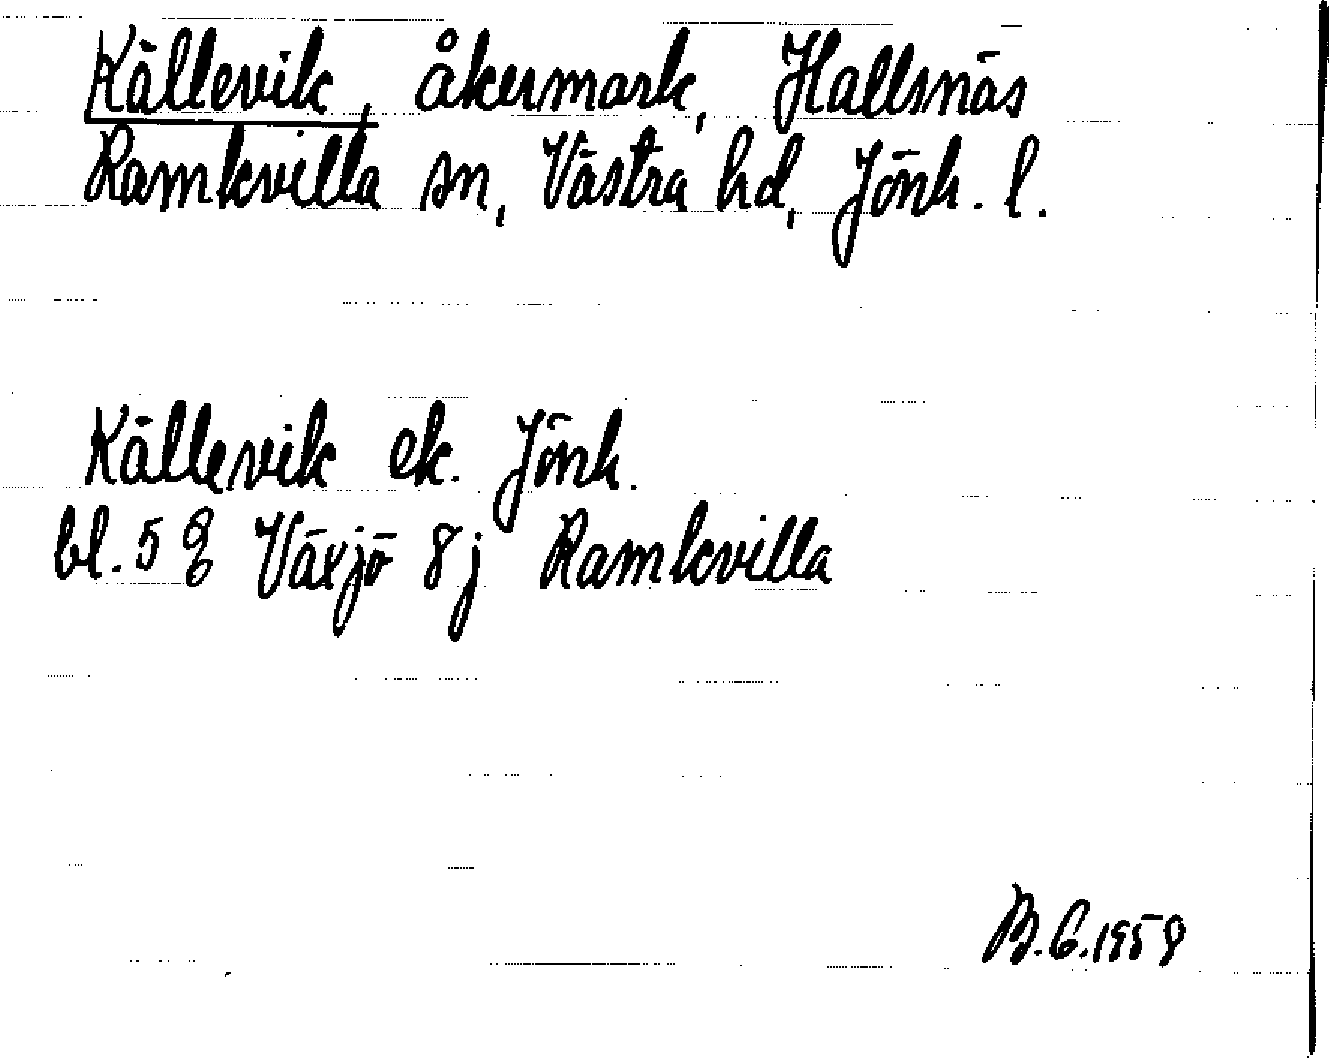 Källevik, åkermark, Hallsnäs
Ramkvilla sn, Västra hd, Jönk. l.
Källevik ek. Jönk.
bl. 58 Växjö 8j Ramkvilla
B.G.1959